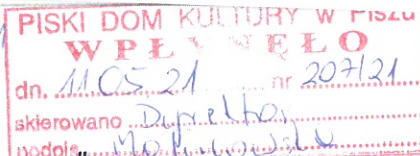 PISKI DOM KULTURY W PISZU
WPŁYNĘŁO
dn. 11.05.21 nr 207/21
skierowano Dyrektor
podpis